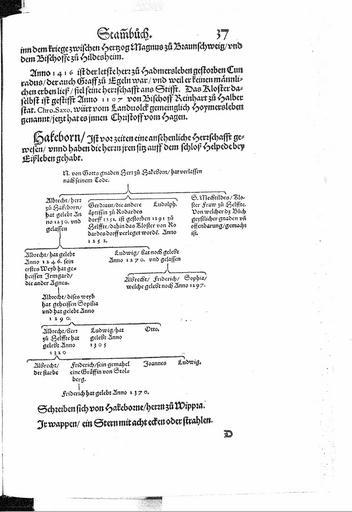 Stam̃bůch. 37
inn dem kriege zwischen Herzog Magnus zů Braunschweig/ vnd
dem Bischoffe zů Hildesheim.
Anno 1416 ist der letste herr zů Hadmersleben gestorben Cun
radus/ der auch Graff zů Egeln war/ vnd weil er keinen männli-
chen erben ließ/ fiel seine herrschafft ans Stifft. Das Kloster da-
selbst ist gestifft Anno 1107 von Bischoff Reinhart zů Halber
stat. Chro. Saxo. würt vom Landuolck gemeinglich Hoymersleben
genannt/ jetzt hat es jnnen Christoff vom Hagen.
Hakeborn/ Ist vor zeiten ein ansehenliche Herrschafft ge-
wesen/ vnnd haben die herrn jren sitz auff dem schloß Helpede bey
Eißleben gehabt.
N. von Gottes gnaden Herr zů Hakeborn/ hat verlassen
nach seinem Tode.
Albrecht/ herr
zů Hakeborn/
hat gelebt An
no 1230. vnd
gelassen
Gerdrum/ die andere
äptissin zů Rodardes
dorff 1251. ist gestorben 1291 zů
Helffte/ dahin das Kloster von Ro
dardesdorff verlegt worden. Anno
1252.
Ludolph.
S. Mechtildes/ Klo-
ster Fraw zů Helffte.
Von welcher dz Bůch
geystlicher gnaden vñ
offenbarung/ gemacht
ist.
Albrecht/ hat gelebt
Anno 1246. sein
erstes Weyb hat ge-
heissen Irmgard/
die ander Agnes.
Ludwig/ hat noch gelebt
Anno 1270. vnd gelassen
Albrecht/ Friderich/ Sophia/
welche gelebt noch Anno 1297.
Albrecht/ dises weyb
hat geheissen Sophia
vnd hat gelebt Anno
1290.
Albrecht/ herr
zů Helffte hat
gelebt Anno
1320
Ludwig/ hat
gelebt Anno
1305
Otto.
Albrecht/
der starbe
Friderich/ sein gemahel
eine Gräffin von Stolo
berg.
Joannes
Ludwig.
Friderich hat gelebt Anno 1370.
Schreiben sich von Hakeborne/ herrn zů Wippra.
Ir wappen/ ein Stern mit acht ecken oder strahlen.
D